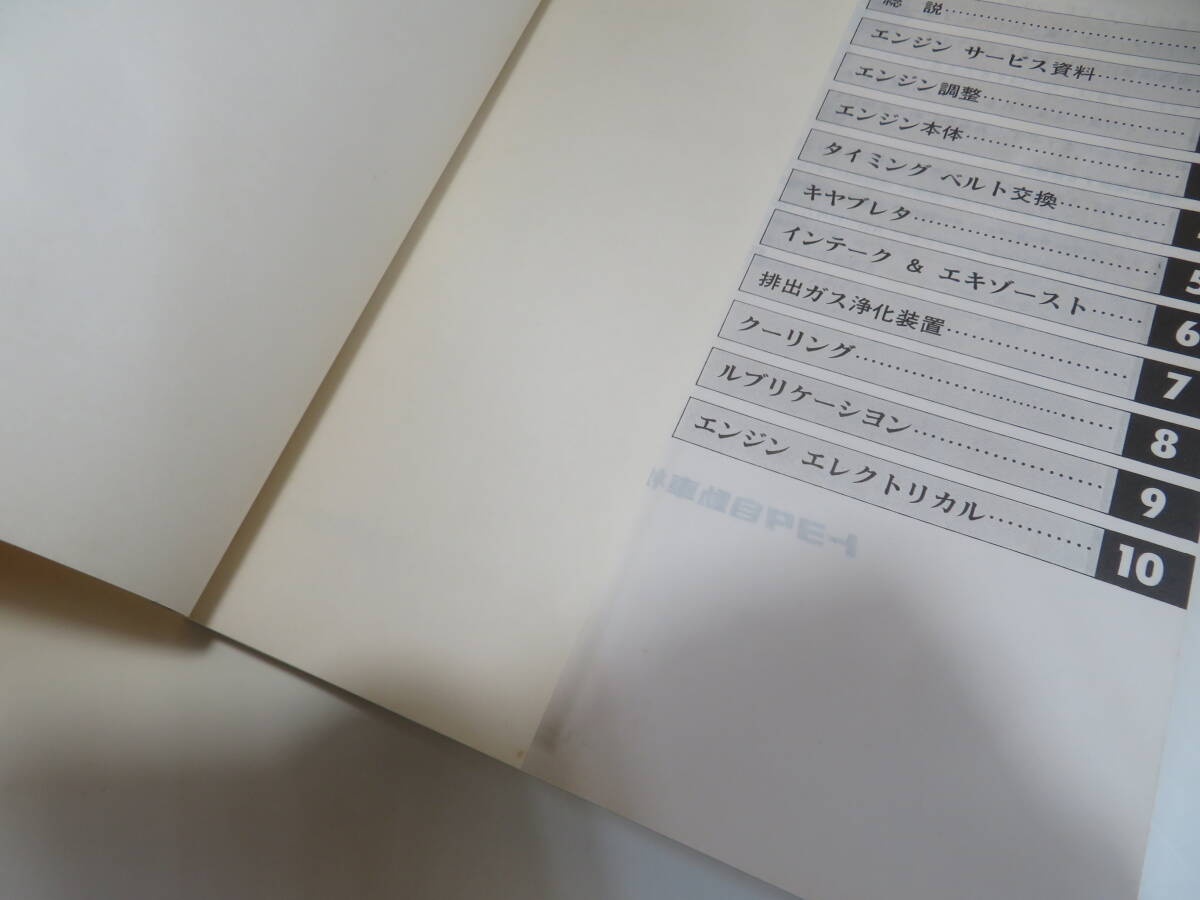 総 説
エンジン サービス資料
エンジン調整
エンジン本体
タイミング ベルト交換
キヤブレタ 5
インテーク & エキゾースト 6
排出ガス浄化装置 7
クーリング 8
ルブリケーシヨン 9
エンジン エレクトリカル 10
トヨタ自動車